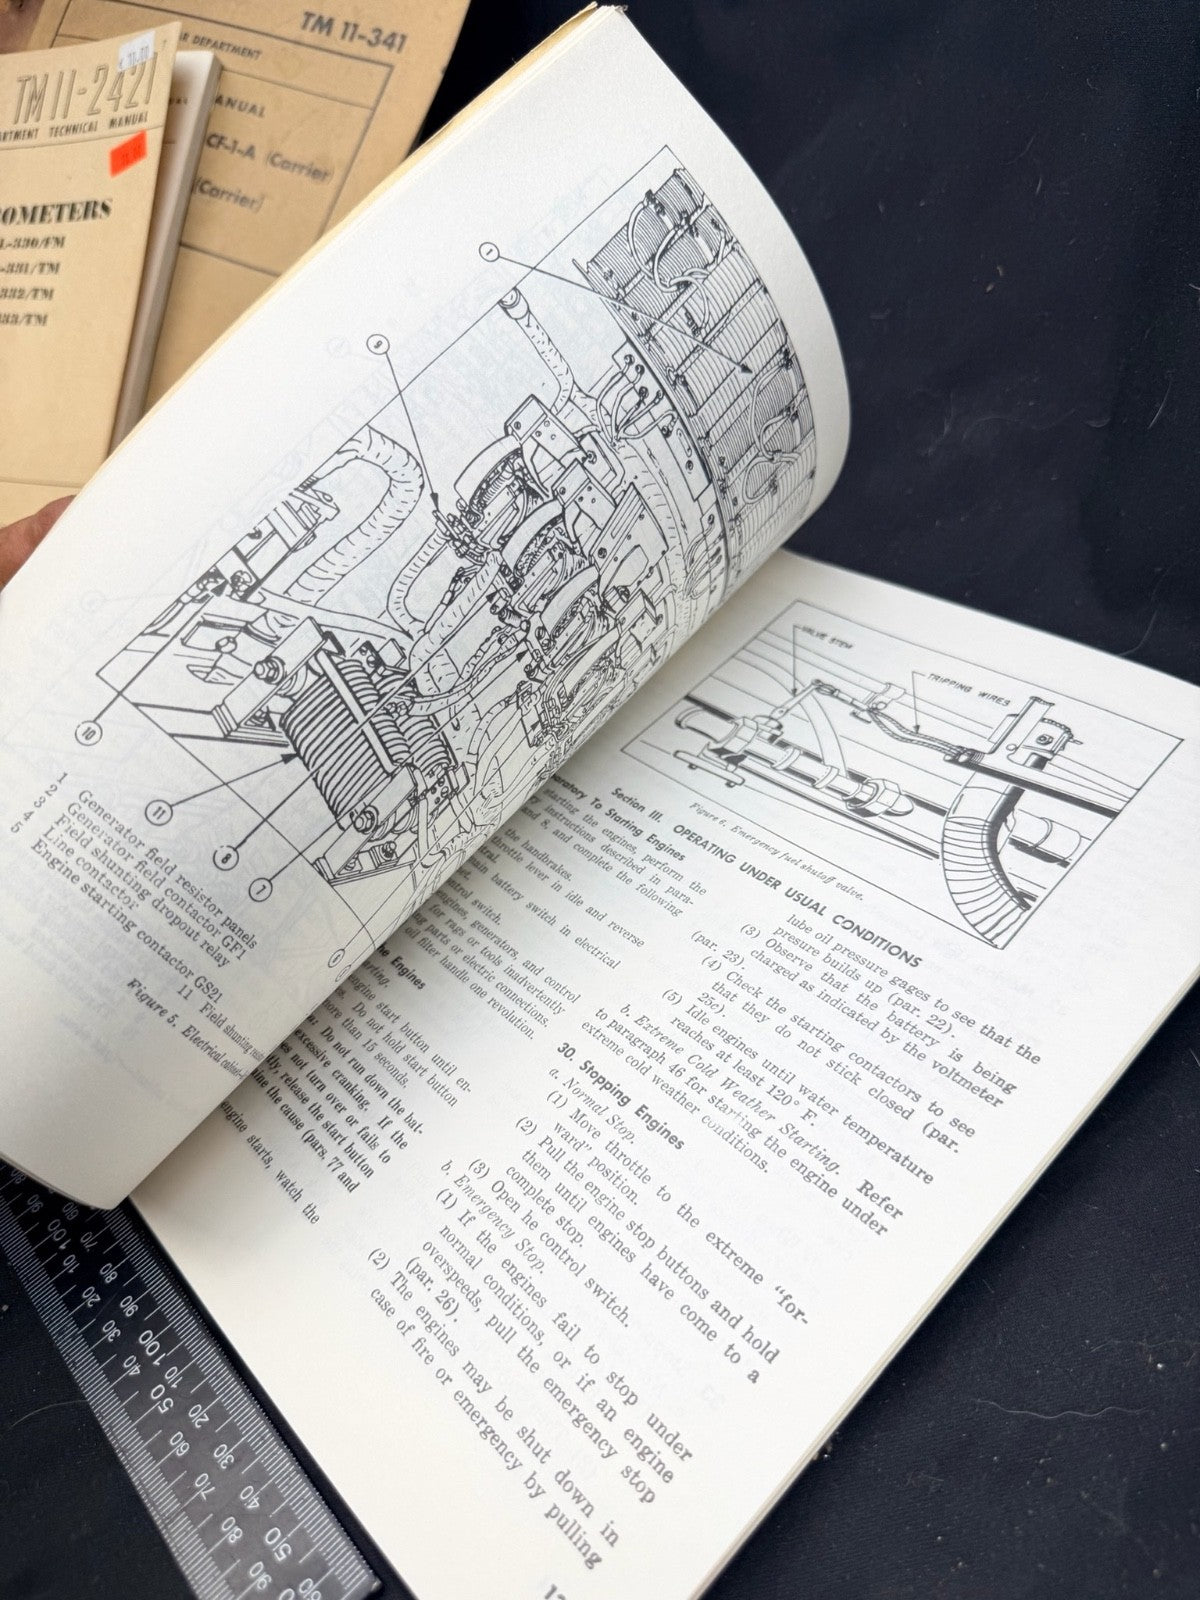 TM 11-341
AR DEPARTMENT
ANUAL
CF-1-A (Carrier)
(Carrier)
TM 11-2421
ARTMENT TECHNICAL MANUAL
OMETERS
-330/FM
-331/TM
332/TM
33/TM
1
9
10
11
8
7
6
1 Generator field resistor panels
2 Generator field contactor GF1
3 Field shunting dropout relay
4 Line contactor
5 Engine starting contactor GS21
11 Field shunting
Figure 5. Electrical cabinet
VALVE STEM
TRIPPING WIRES
Figure 6. Emergency fuel shutoff valve.
Section III. OPERATING UNDER USUAL CONDITIONS
aratory To Starting Engines
starting the engines, perform the
ry instructions described in para-
and 8, and complete the following
the handbrakes.
throttle lever in idle and reverse
tral.
ain battery switch in electrical
et.
control switch.
engines, generators, and control
for rags or tools inadvertently
ng parts or electric connections.
oil filter handle one revolution.
he Engines
Starting.
engine start button until en-
Do not hold start button
more than 15 seconds.
Do not run down the bat-
excessive cranking. If the
es not turn over or fails to
ly, release the start button
ine the cause (pars. 77 and
engine starts, watch the
lube oil pressure gages to see that the
presure builds up (par. 22).
(3) Observe that the battery is being
charged as indicated by the voltmeter
(par. 23).
(4) Check the starting contactors to see
that they do not stick closed (par.
25c).
(5) Idle engines until water temperature
reaches at least 120° F.
b. Extreme Cold Weather Starting. Refer
to paragraph 46 for starting the engine under
extreme cold weather conditions.
30. Stopping Engines
a. Normal Stop.
(1) Move throttle to the extreme “for-
ward” position.
(2) Pull the engine stop buttons and hold
them until engines have come to a
complete stop.
(3) Open he control switch.
b. Emergency Stop.
(1) If the engines fail to stop under
normal conditions, or if an engine
overspeeds, pull the emergency stop
(par. 26).
(2) The engines may be shut down in
case of fire or emergency by pulling